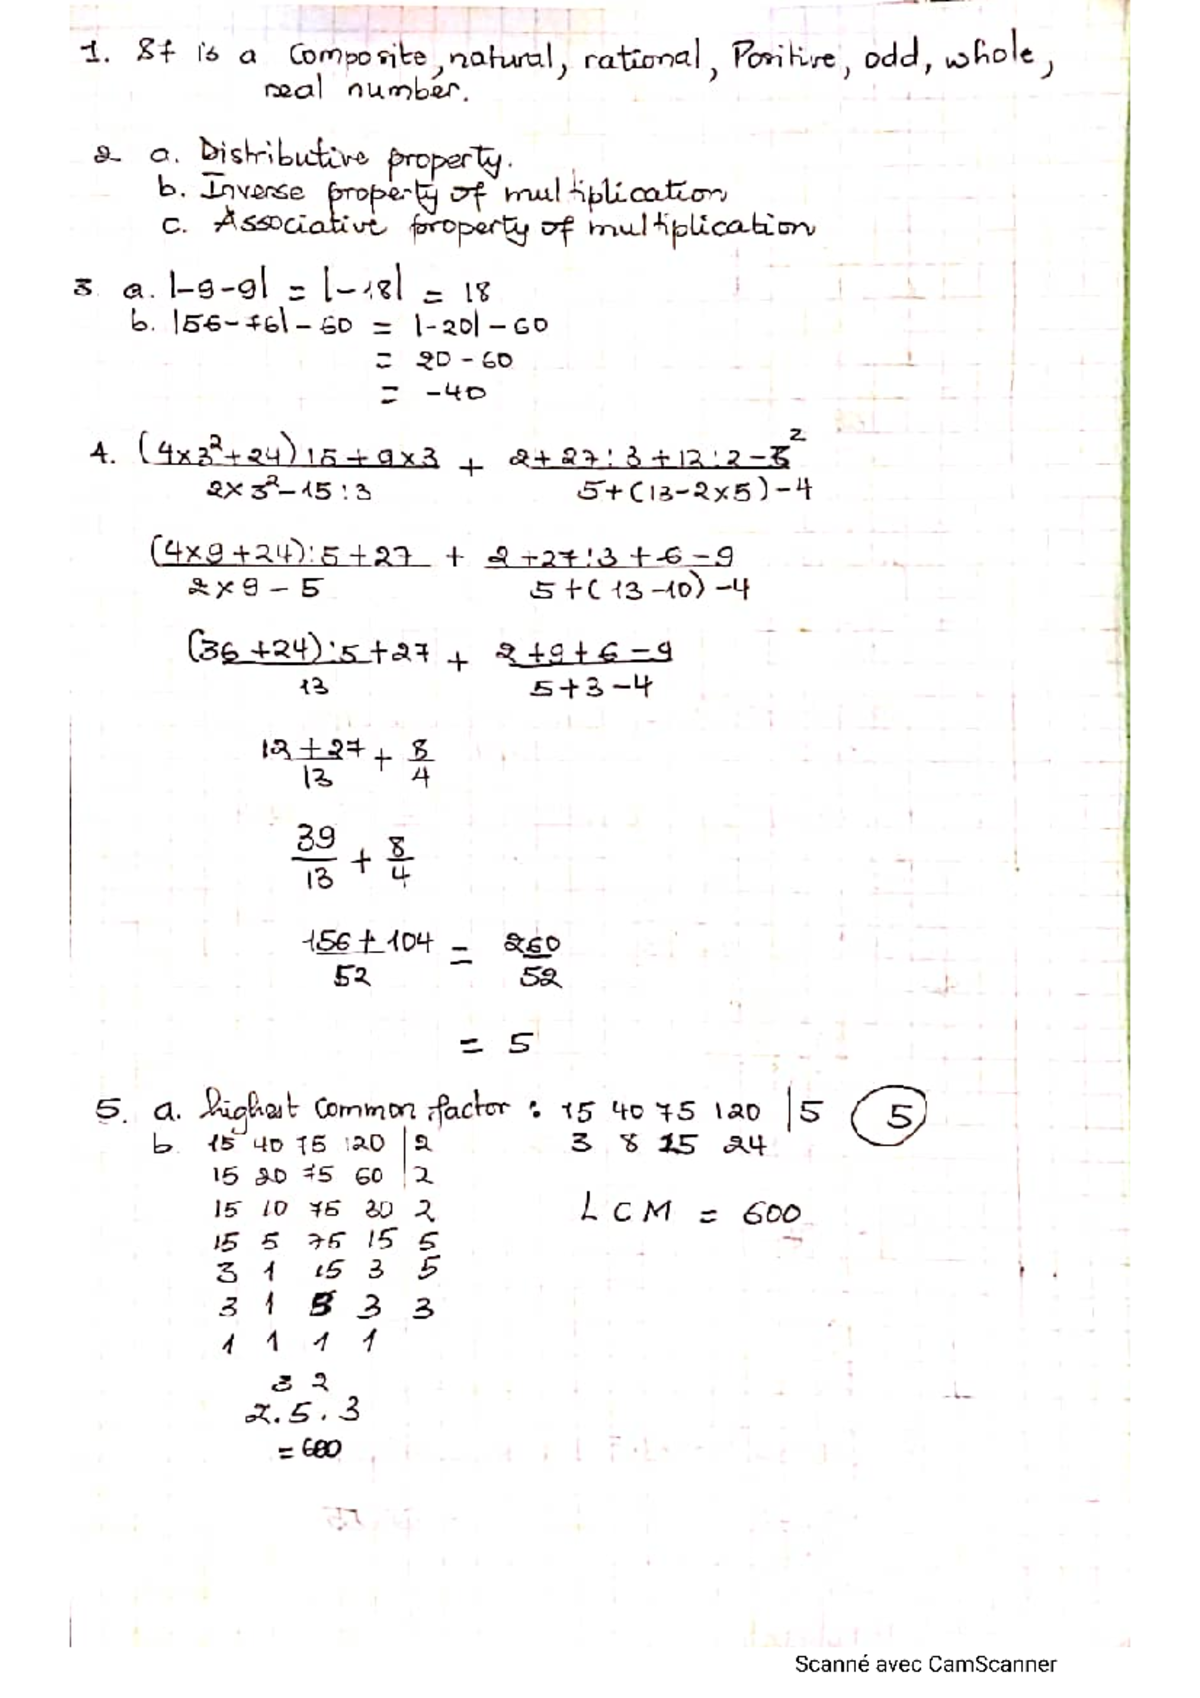 1. 87 is a composite, natural, rational, Positive, odd, whole,
real number.
2 a. Distributive property.
b. Inverse property of multiplication
c. Associative property of multiplication
3 a. |-9-9| = |-18| = 18
b. |56-76| - 60 = |-20| - 60
= 20 - 60
= -40
4. (4x3²+24):5+9x3 + 2+27:3+12:2-3²
2x3²-15:3 5+(13-2x5)-4
(4x9+24):5+27 + 2+27:3+6-9
2x9-5 5+(13-10)-4
(36+24):5+27 + 2+9+6-9
13 5+3-4
12+27 + 8
13 4
39 + 8
13 4
156+104 = 260
52 52
= 5
5. a. highest common factor : 15 40 75 120 | 5 5
b. 15 40 75 120 | 2 3 8 15 24
15 20 75 60 | 2
15 10 75 30 2 LCM = 600
15 5 75 15 5
3 1 15 3 5
3 1 3 3 3
1 1 1 1
3 2
2.5.3
= 600
Scanné avec CamScanner